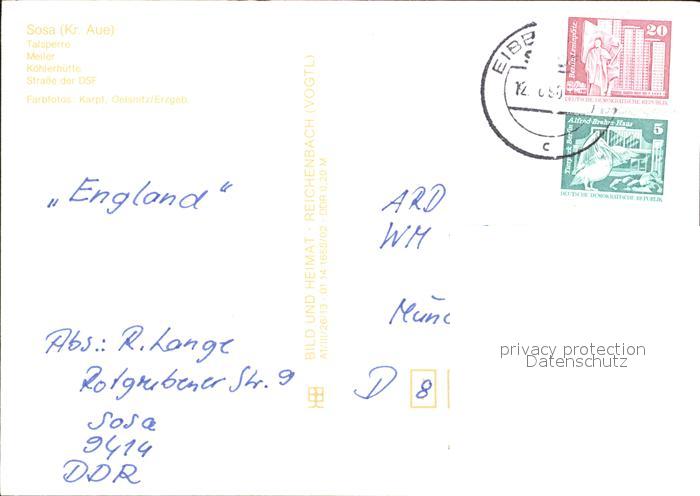 Sosa (Kr. Aue)
Talsperre
Meiler
Köhlerhütte
Straße der DSF
Farbfotos: Karpf, Oelsnitz/Erzgeb.
„England“
Abs.: R. Lange
Rotgrubener Str. 9
Sosa
9414
DDR
BILD UND HEIMAT · REICHENBACH (VOGTL)
A1/III/26/13 · 01 14 1658/02 · DDR 0,20 M
EIBE
12.
c
20
Berlin, Leninplatz
DEUTSCHE DEMOKRATISCHE REPUBLIK
5
Tierpark Berlin Alfred-Brehm-Haus
DEUTSCHE DEMOKRATISCHE REPUBLIK
ARD
WM
Münc
D 8
privacy protection
Datenschutz